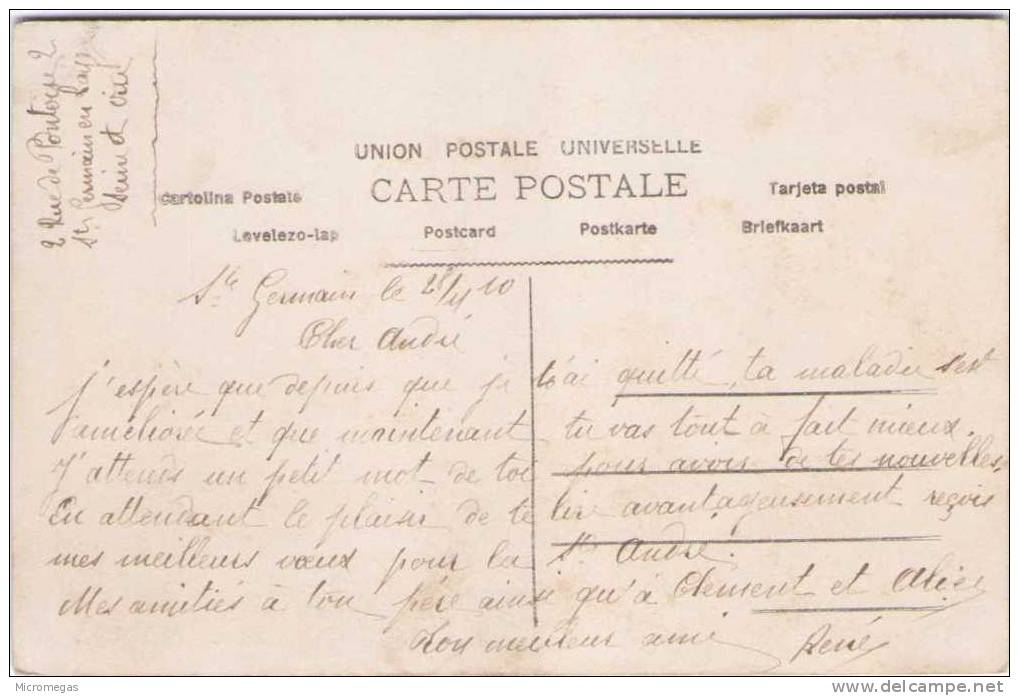 2 Rue de Pontoise 2
St Germain en Laye
Seine et Oise
UNION POSTALE UNIVERSELLE
CARTE POSTALE
Cartolina Postale
Tarjeta postal
Levelezo-lap
Postcard
Postkarte
Briefkaart
St Germain le 28/11/10
Cher André
J'espère que depuis que je t'ai quitté, ta maladie s'est
améliorée et que maintenant tu vas tout à fait mieux.
J'attends un petit mot de toi pour avoir de tes nouvelles,
En attendant le plaisir de te lire avantageusement reçois
mes meilleurs vœux pour la St André.
Mes amitiés à ton père ainsi qu'à Clément et Alice
Ton meilleur ami René
Micromegas
www.delcampe.net